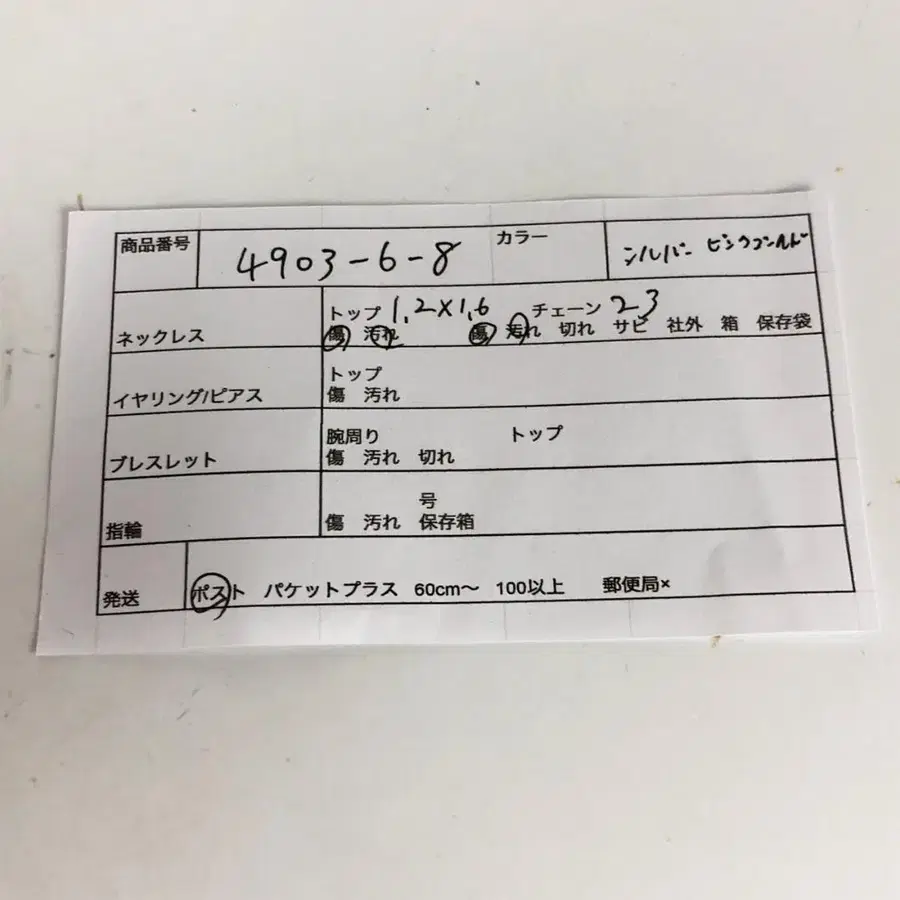 商品番号 4903-6-8 カラー シルバー ピンクゴールド
ネックレス トップ 1.2×1.6 チェーン 23
傷 汚れ 傷 汚れ 切れ サビ 社外 箱 保存袋
イヤリング/ピアス トップ
傷 汚れ
ブレスレット 腕周り トップ
傷 汚れ 切れ
指輪 号
傷 汚れ 保存箱
発送 ポスト パケットプラス 60cm〜 100以上 郵便局×